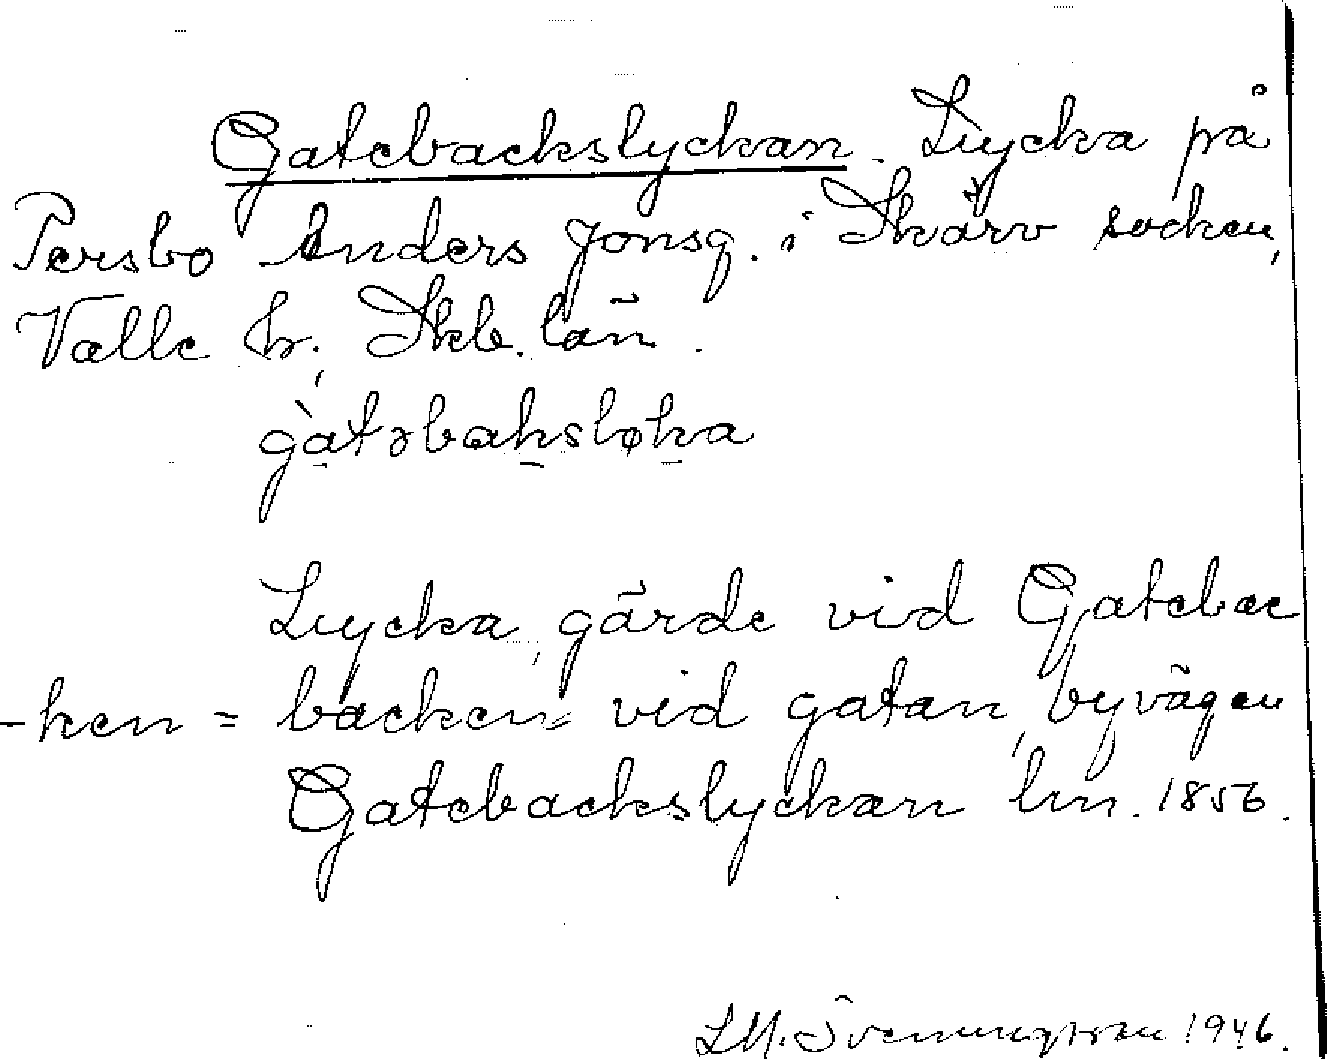 Gatebackslyckan. Lycka på
Persbo Anders Jonsg. i Skärv socken,
Valle h., Skb. län.
gàtəbaksløka
Lycka, gärde vid Gatebac
-ken = backen vid gatan, byvägen
Gatebackslyckan lm. 1856.
1946.